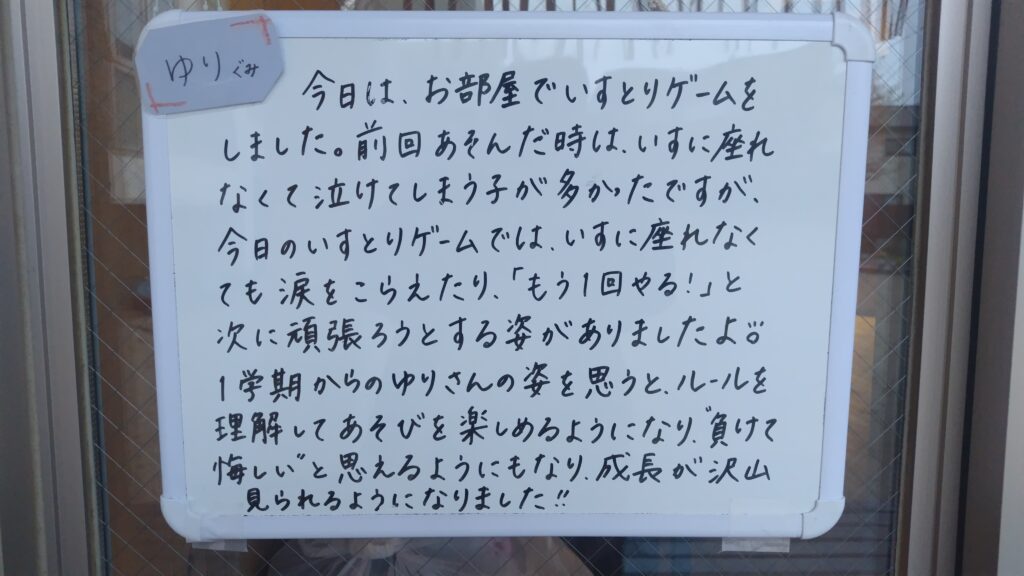 ゆりぐみ
今日は、お部屋でいすとりゲームを
しました。前回あそんだ時は、いすに座れ
なくて泣けてしまう子が多かったですが、
今日のいすとりゲームでは、いすに座れなく
ても涙をこらえたり、「もう1回やる!」と
次に頑張ろうとする姿がありましたよ。
1学期からのゆりさんの姿を思うと、ルールを
理解してあそびを楽しめるようになり、"負けて
悔しい"と思えるようにもなり、成長が沢山
見られるようになりました!!